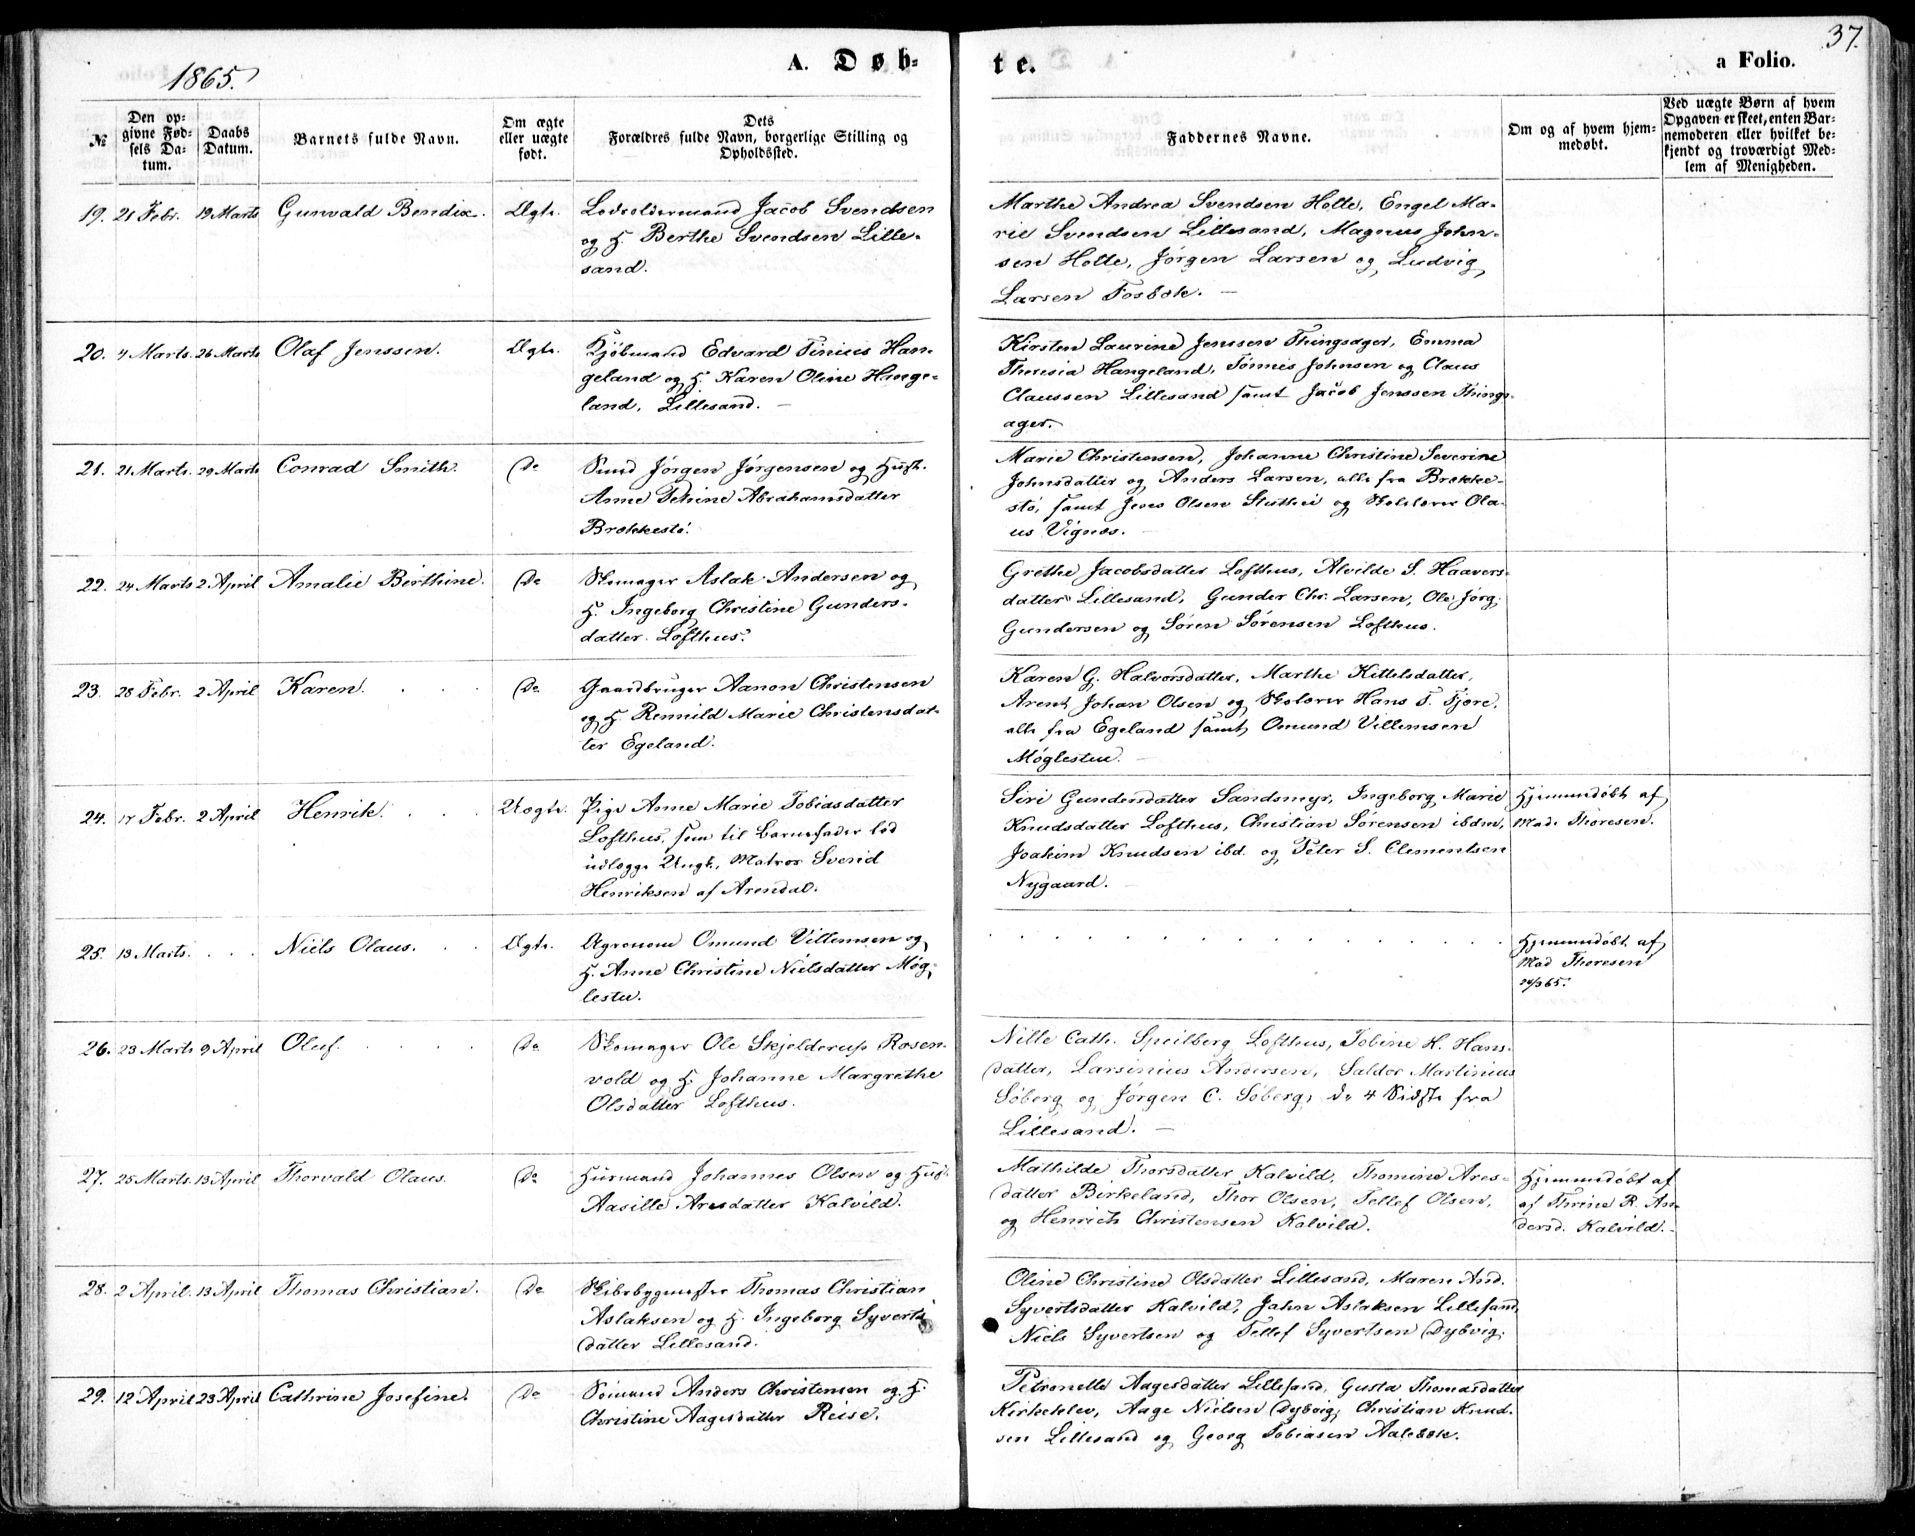 1865.
A. Døb-
te.
a Folio.
37.
№
Den op-
givne Fød-
sels Da-
tum.
Daabs
Datum.
Barnets fulde Navn.
Om ægte
eller uægte
født.
Dets
Forældres fulde Navn, borgerlige Stilling og
Opholdssted.
Faddernes Navne.
Om og af hvem hjem-
medøbt.
Ved uægte Børn af hvem
Opgaven er skeet, enten Bar-
nemoderen eller hvilket be-
kjendt og troværdigt Med-
lem af Menigheden.
19. 21 Febr. 19 Marts Gunvald Bendix. Ægte. Lodsoldermand Jacob Svendsen
og H. Berthe Svendsen Lille-
sand.
Marthe Andrea Svendsen Holte, Engel Ma-
rie Svendsen Lillesand, Magnus John-
sen Holte, Jørgen Larsen og Ludvig
Larsen Fosbæk. —
20. 4 Marts. 26 Marts Olaf Jenssen. Ægte. Kjøbmand Edvard Tinius Han-
geland og H. Karen Oline Hange-
land, Lillesand. —
Kirsten Laurine Jenssen Thingsager, Emma
Theresia Hangeland, Tønnes Johnsen og Claus
Claussen Lillesand samt Jacob Jenssen Things-
ager.
21. 21 Marts. 29 Marts Conrad Smith. Do Smed Jørgen Jørgensen og Hust.
Anne Tehine Abrahamsdatter
Brækkestø.
Marie Christensen, Johanne Christine Severine
Johnsdatter og Anders Larsen, alle fra Brække-
stø, samt Jens Olsen Sluthei og Skolelærer Ola-
us Vignæs.
22. 24 Marts 2 April Amalie Berthine. Do Skomager Aslak Andersen og
H. Ingeborg Christine Gunders-
datter Lofthus.
Grethe Jacobsdatter Lofthus, Alvilde S. Haavers-
datter Lillesand, Gunder Chr. Larsen, Ole Jørg.
Gundersen og Søren Sørensen Lofthus.
23. 28 Febr. 2 April Karen. Do Gaardbruger Aanon Christensen
og H. Rennild Marie Christensdat-
ter Egeland.
Karen G. Halvorsdatter, Marthe Kittelsdatter,
Arent Johan Olsen og Skolærer Hans T. Fjære,
alle fra Egeland samt Omund Villemsen
Møglestu.
24. 17 Febr. 2 April Henrik. Uægte. Pige Anne Marie Tobiasdatter
Lofthus, som til Barnefader lod
udlægge Ungk., Matros Svend
Henriksen af Arendal.
Siri Gundersdatter Sandsmyr, Ingeborg Marie
Knudsdatter Lofthus, Christian Sørensen ibdm,
Joakim Knudsen ibd. og Peter S. Clementsen
Nygaard.
Hjemmedøbt af
Mad. Thoresen.
25. 13 Marts. Niels Olaus. Ægte. Agronom Omund Villemsen og
H. Anne Christine Nielsdatter Møg-
lestu.
Hjemmedøbt af
Mad Thoresen
26. 23 Marts 9 April Oluf. Do Skomager Ole Skjelderup Rosen-
vold og H. Johanne Margrethe
Olsdatter Lofthus.
Nille Cath. Speilberg Lofthus, Tobine H. Hans-
datter, Larsinius Andersen, Saldor Martinius
Søberg og Jørgen C. Søberg, de 4 Sidste fra
Lillesand. —
27. 25 Marts. 13 April Thorvald Olaus. Do Huusmand Johannes Olsen og Hust.
Aasille Aresdatter Kalvild.
Mathilde Thorsdatter Kalvild, Thomine Ares-
datter Birkeland, Thor Olsen, Tellef Olsen,
og Henrich Christensen Kalvild.
Hjemmedøbt af
af Thrine R. An-
dersd. Kalvild.
28. 2 April. 13 April Thomas Christian. Do Skibsbygmester Thomas Christian
Aslaksen og H. Ingeborg Syverts-
datter Lillesand.
Oline Christine Olsdatter Lillesand, Maren And.
Syvertsdatter Kalvild, Jahn Aslaksen Lillesand,
Niels Syvertsen og Tellef Syvertsen Dybvig.
29. 12 April 23 April Cathrine Josefine. Do Sømand Anders Christensen og H.
Christine Aagesdatter Reise.
Petronelle Aagesdatter Lillesand, Gusta Thomasdatter
Kirkeklev, Aage Nielsen Dybvig, Christian Knud-
sen Lillesand og Georg Tobiasen Aalebæk.